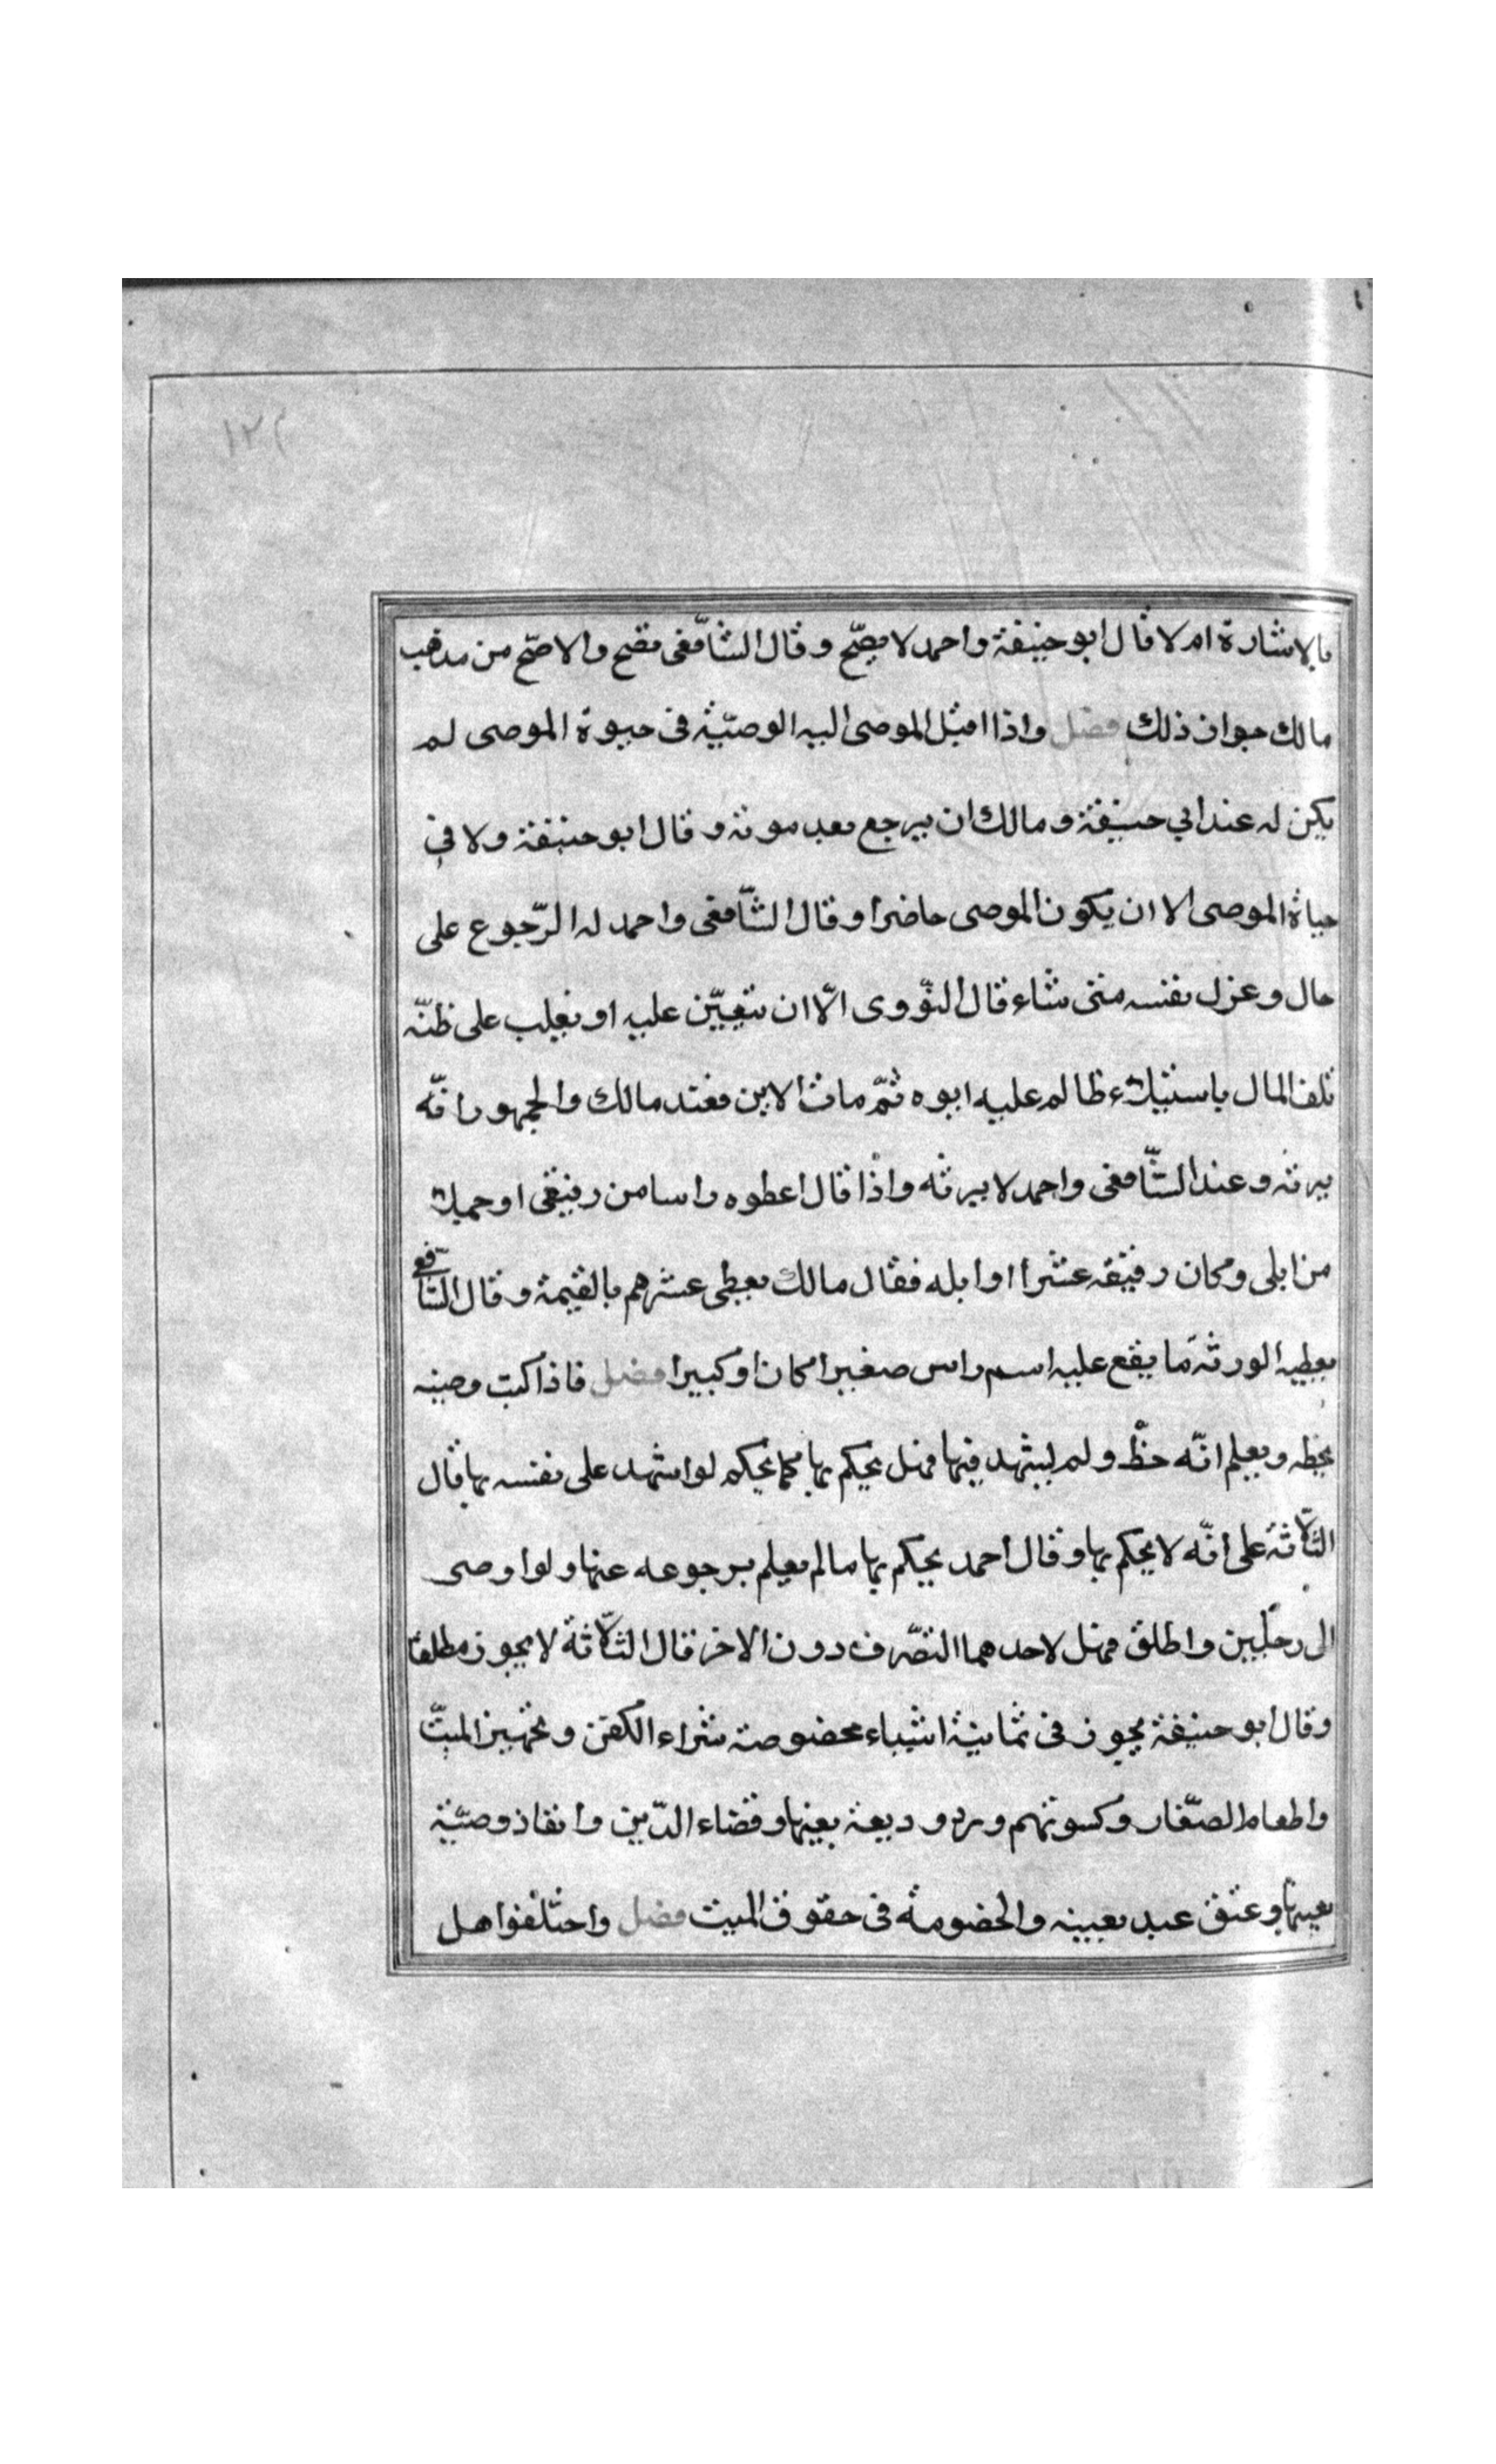 ١٢٢
بالاشارة ام لا قال ابو حنيفة واحمد لا يصّح وقال الشافّعى تصّح والاصّح من مذهب
مالك جواز ذلك فصل واذا اقبل الموصى اليه الوصيّة فى حيوة الموصى لم
يكن له عند ابي حنيفة ومالك ان يرجع بعد موته وقال ابو حنيفة ولا في
حياة الموصى الا ان يكون الموصى حاضرا وقال الشّافعى واحمد له الرّجوع على
حال وعزل نفسه متى شاء قال النّووى الّا ان تتعيّن عليه او يغلب على ظنّه
تلف المال باستيلاء ظالم عليه ابوه ثمّ مات الابن فعند مالك والجمهور انّه
يرثه وعند الشّافعى واحمد لا يرثه واذا قال اعطوه راسا من رقيقى او جملا
من ابلى وكان رقيقه عشرا او ابله فقال مالك يعطى عشرهم بالقيمة وقال الشّافعي
يعطيه الورثة ما يقع عليه اسم راس صغيرا كان او كبيرا فصل فاذا كتب وصيته
بخطه ويعلم انّه خطّ ولم يشهد فيها فهل يحكم بها كما يحكم لو اشهد على نفسه بها قال
الثّلاثة على انّه لا يحكم بها وقال احمد يحكم بها ما لم يعلم برجوعه عنها ولو اوصى
الى رجلين واطلق فهل لاحدهما التصّرف دون الاخر قال الثّلاثة لا يجوز مطلقا
وقال ابو حنيفة يجوز فى ثمانية اشياء مخصوصة شراء الكفن وتجهيز الميّت
واطعام الصّغار وكسوتهم ورد وديعة بعينها وقضاء الدّين وانفاذ وصيّة
بعينها وعتق عبد بعينه والخصومة فى حقوق الميت فصل واختلفوا هل